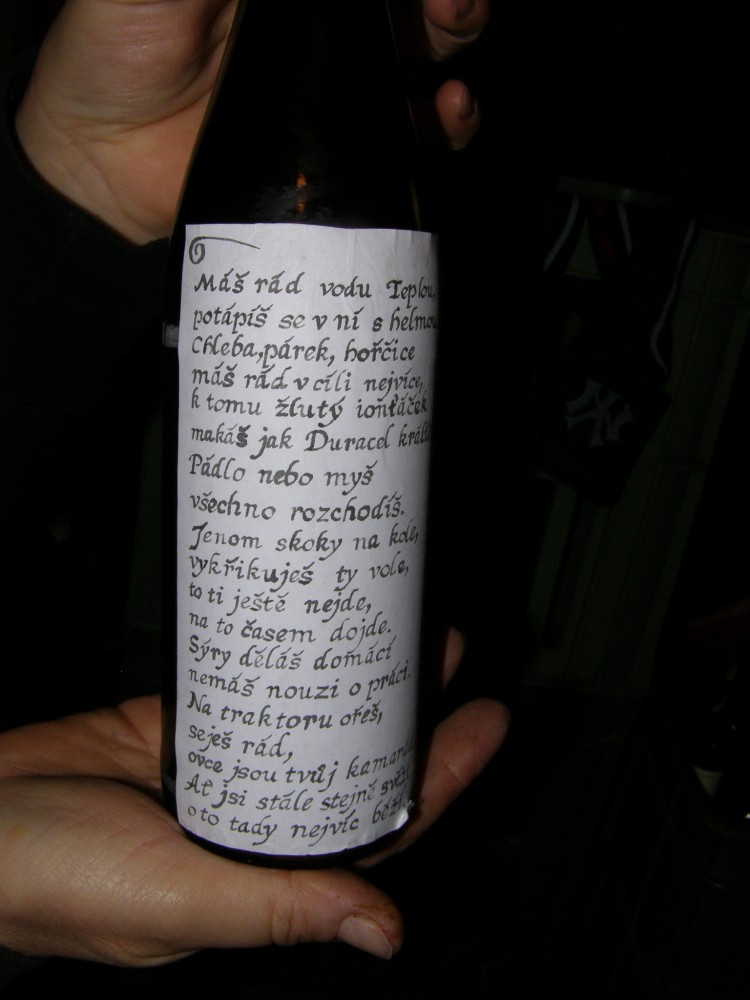 Máš rád vodu Teplou,
potápíš se v ní s helmou
Chleba, párek, hořčice
máš rád v cíli nejvíce,
k tomu žlutý ionťáček
makáš jak Duracel králí
Pádlo nebo myš
všechno rozchodíš.
Jenom skoky na kole,
vykřikuješ ty vole,
to ti ještě nejde,
na to časem dojde.
Sýry děláš domácí
nemáš nouzi o práci.
Na traktoru ořeš,
seješ rád,
ovce jsou tvůj kamarád
Ať jsi stále stejně svěží
o to tady nejvíc běží.
NY